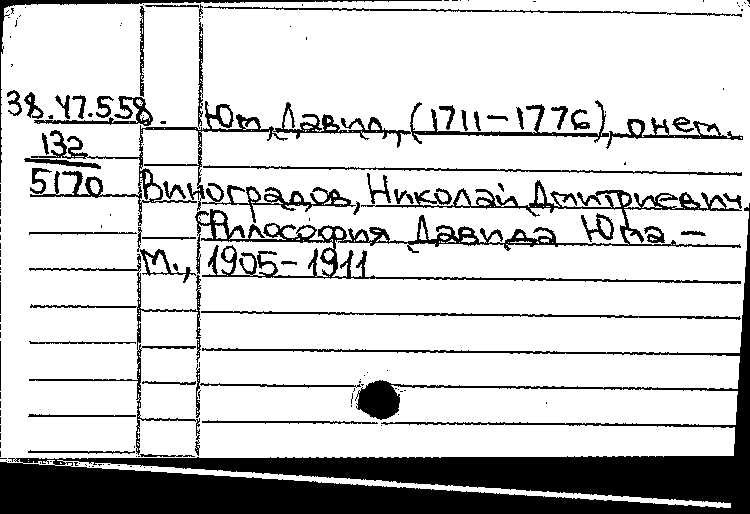 38.47.5.58. Юм, Давид, (1711-1776), о нем.
132
5170 Виноградов, Николай Дмитриевич.
Философия Давида Юма. -
М., 1905-1911